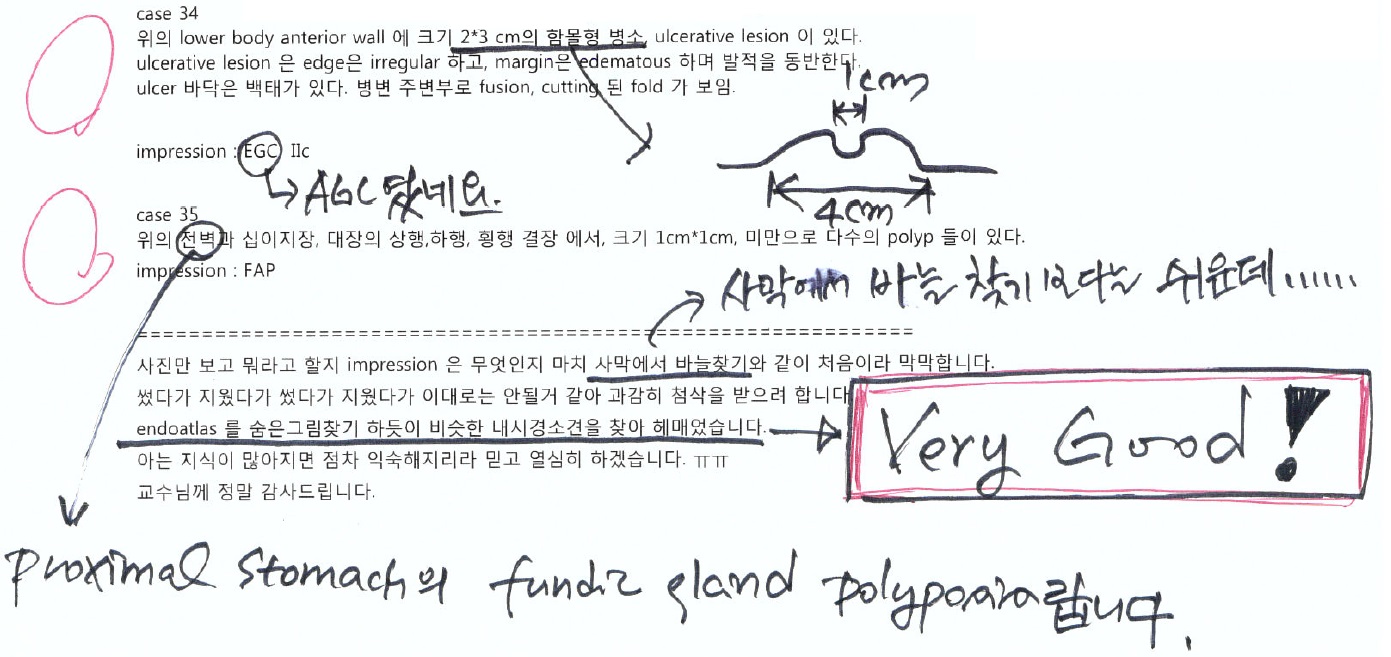 case 34
위의 lower body anterior wall 에 크기 2*3 cm의 함몰형 병소, ulcerative lesion 이 있다.
ulcerative lesion 은 edge은 irregular 하고, margin은 edematous 하며 발적을 동반한다.
ulcer 바닥은 백태가 있다. 병변 주변부로 fusion, cutting 된 fold 가 보임.
1cm
impression : EGC IIc
AGC 였네요.
4cm
case 35
위의 전벽과 십이지장, 대장의 상행,하행, 횡행 결장 에서, 크기 1cm*1cm, 미만으로 다수의 polyp 들이 있다.
impression : FAP
사막에서 바늘 찾기 보다는 쉬운데......
==================================================================
사진만 보고 뭐라고 할지 impression 은 무엇인지 마치 사막에서 바늘찾기와 같이 처음이라 막막합니다.
썼다가 지웠다가 썼다가 지웠다가 이대로는 안될거 같아 과감히 첨삭을 받으려 합니다
endoatlas 를 숨은그림찾기 하듯이 비슷한 내시경소견을 찾아 헤매었습니다.
Very Good!
아는 지식이 많아지면 점차 익숙해지리라 믿고 열심히 하겠습니다. ㅠㅠ
교수님께 정말 감사드립니다.
proximal stomach의 fundic gland polyposis랍니다.